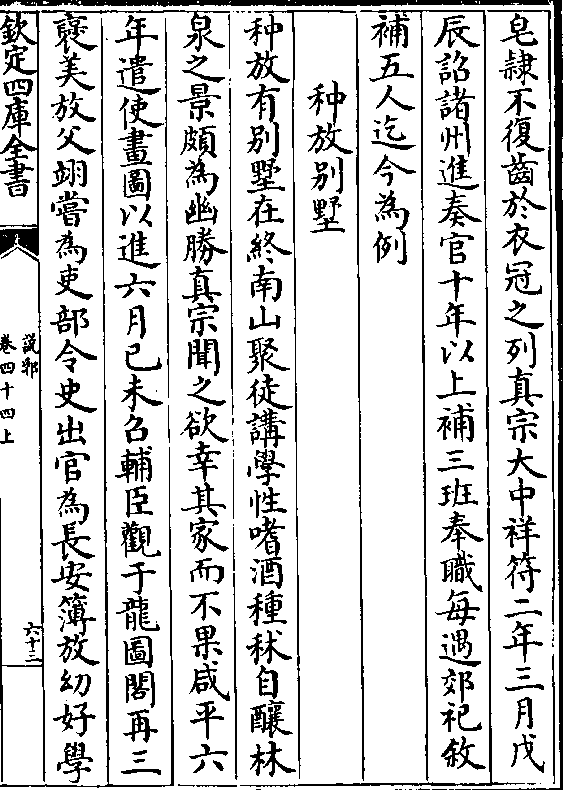 皂隸不復齒於衣冠之列真宗大中祥符二年三月戊
辰詔諸州進奏官十年以上補三班奉職每遇郊祀敘
補五人迄今為例
种放别墅
种放有别墅在終南山聚徒講學性嗜酒種秫自釀林
泉之景頗為幽勝真宗聞之欲幸其家而不果咸平六
年遣使畫圖以進六月已未召輔臣觀于龍圖閣再三
襃美放父翊嘗為吏部令史出官為長安簿放幼好學
欽定四庫全書
說郛
卷四十四上
六十三